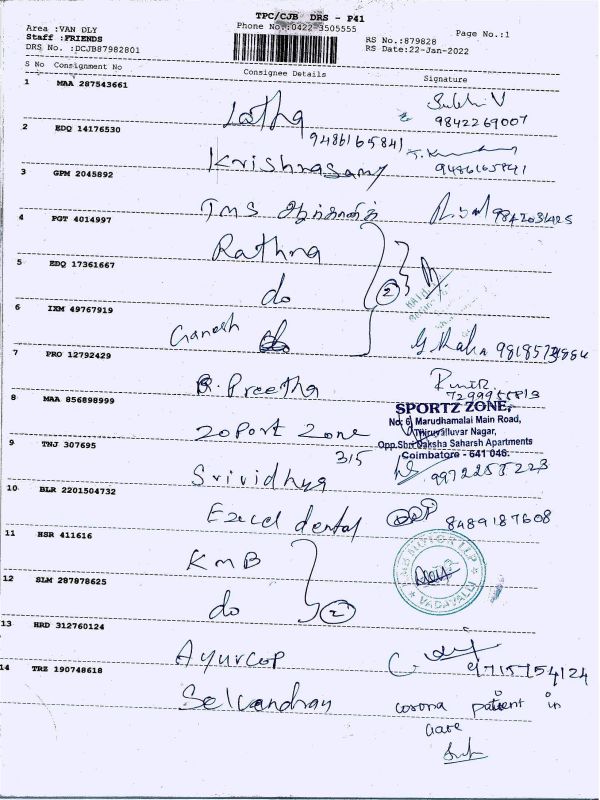 TPC/CJB DRS - P41
Area :VAN DLY
Phone No.:0422-3505555
Page No.:1
Staff :FRIENDS
RS No.:879828
DRS No. :DCJB87982801
RS Date:22-Jan-2022
S No Consignment No Consignee Details Signature
1 MAA 287543661
Latha
9842269007
2 EDQ 14176530
9486165841
Krishnasamy 9486165841
3 GPM 2045892
TMS
4 PGT 4014997
Rathna
5 EDQ 17361667
do 2
6 IXM 49767919
Ganesh
7 PRO 12792429
R. Preetha
8 MAA 856898999
SPORTZ ZONE,
No: 6, Marudhamalai Main Road,
Thiruvalluvar Nagar,
Opp.Shri Daksha Saharsh Apartments
Coimbatore - 641 046.
Zone
315
9 TNJ 307695
Srividhya
10 BLR 2201504732
Excel dental 8489187608
11 HSR 411616
KMB
VADAVALLI
12 SLM 287878625
do 2
13 HRD 312760124
Ayurcop 9715754124
14 TRZ 190748618
Selvandran
corona patient in